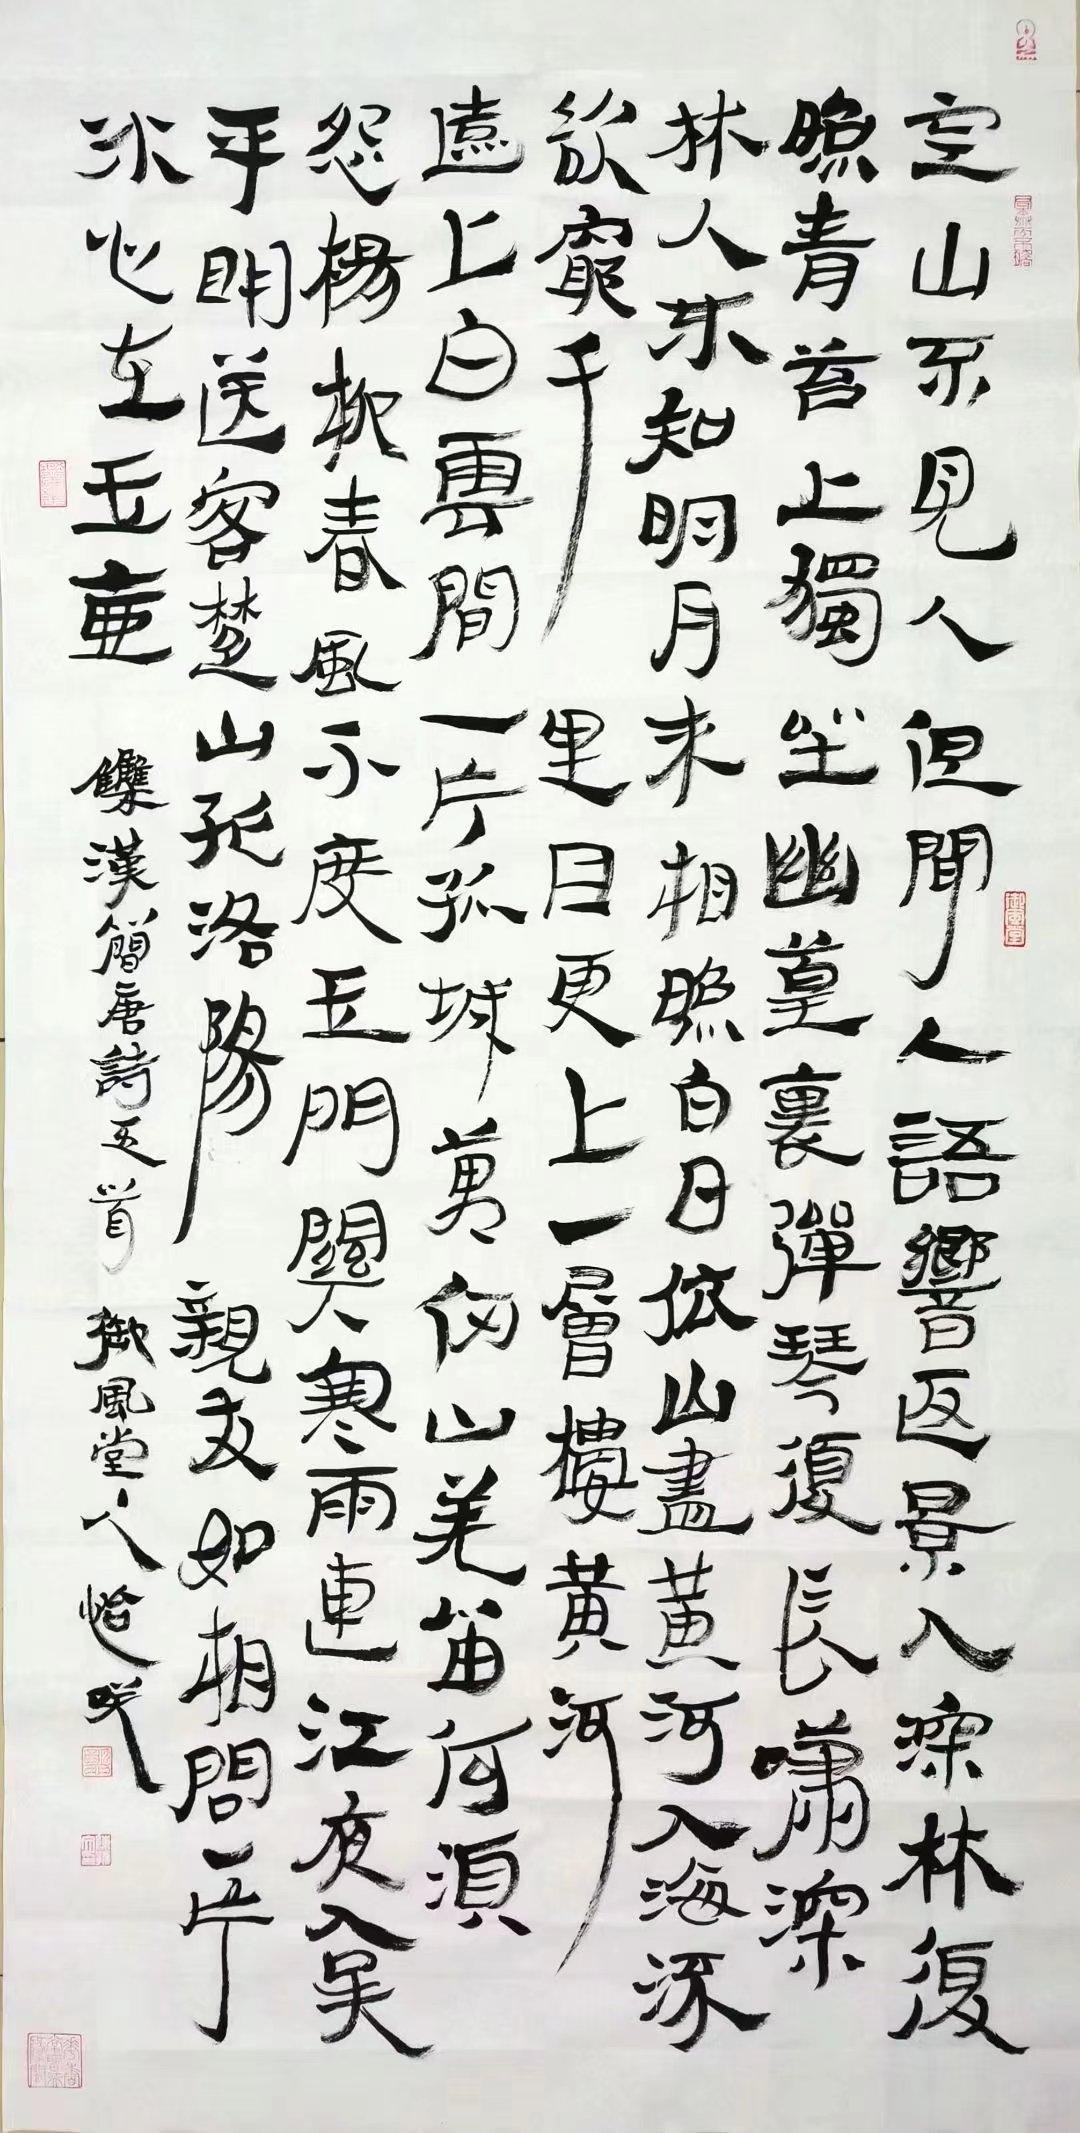 空山不見人但聞人語響返景入深林復
照青苔上獨坐幽篁裏彈琴復長嘯深
林人不知明月來相照白日依山盡黃河入海流
欲窮千里目更上一層樓黃河
遠上白雲間一片孤城萬仞山羌笛何須
怨楊柳春風不度玉門關寒雨連江夜入吳
平明送客楚山孤洛陽親友如相問一片
冰心在玉壺
集漢簡唐詩五首 御風堂人
御風堂